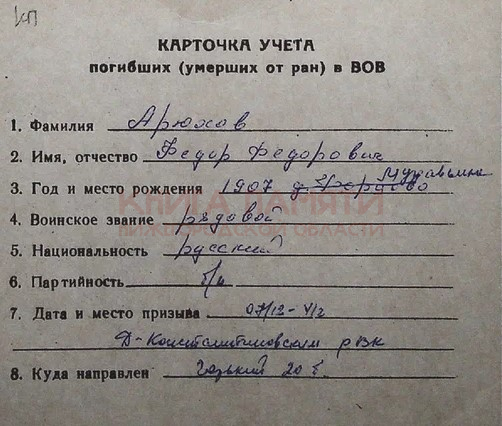 кп
КАРТОЧКА УЧЕТА
погибших (умерших от ран) в ВОВ
1. Фамилия Арюхов
2. Имя, отчество Федор Федорович
3. Год и место рождения 1907 д.
4. Воинское звание рядовой
5. Национальность русский
6. Партийность б/п
7. Дата и место призыва
Д-Константиновским рвк
8. Куда направлен Горький 20
КНИГА ПАМЯТИ
НИЖЕГОРОДСКОЙ ОБЛАСТИ